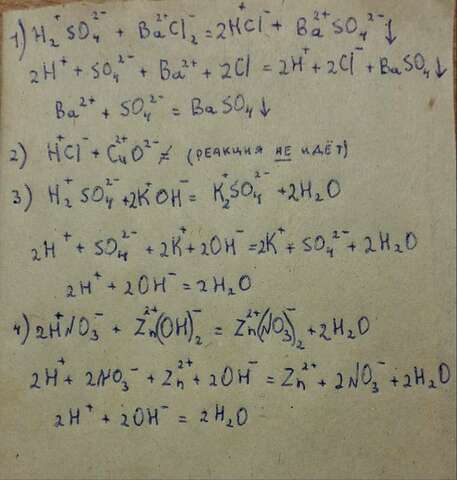 1) H₂⁺SO₄²⁻ + Ba²⁺Cl₂⁻ = 2H⁺Cl⁻ + Ba²⁺SO₄²⁻↓
2H⁺ + SO₄²⁻ + Ba²⁺ + 2Cl = 2H⁺ + 2Cl⁻ + BaSO₄↓
Ba²⁺ + SO₄²⁻ = BaSO₄↓
2) H⁺Cl⁻ + Cu²⁺O²⁻ ≠ (РЕАКЦИЯ НЕ ИДЁТ)
3) H₂⁺SO₄²⁻ + 2K⁺OH⁻ = K₂⁺SO₄²⁻ + 2H₂O
2H⁺ + SO₄²⁻ + 2K⁺ + 2OH⁻ = 2K⁺ + SO₄²⁻ + 2H₂O
2H⁺ + 2OH⁻ = 2H₂O
4) 2H⁺NO₃⁻ + Zn²⁺(OH)₂⁻ = Zn²⁺(NO₃)₂⁻ + 2H₂O
2H⁺ + 2NO₃⁻ + Zn²⁺ + 2OH⁻ = Zn²⁺ + 2NO₃⁻ + 2H₂O
2H⁺ + 2OH⁻ = 2H₂O